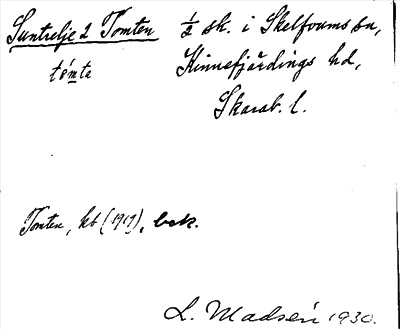 Suntrelje 2 Tomten ½ sk. i Skelfvums sn,
tömta Kinnefjärdings hd,
Skarab. l.
Tomten, kb (1919), bek.
L. Madsén 1930.